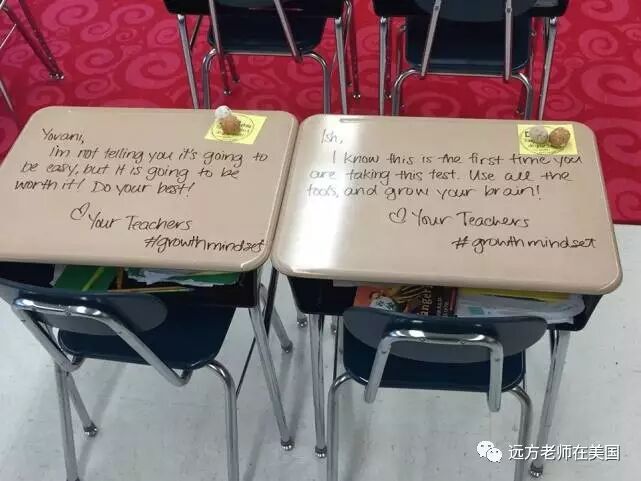 Yovani,
i'm not telling you it's going to
be easy, but it is going to be
worth it! Do your best!
♡Your Teachers
#growthmindset
Ish,
I know this is the first time you
are taking this test. Use all the
tools, and grow your brain!
♡Your Teachers
#growthmindset
远方老师在美国